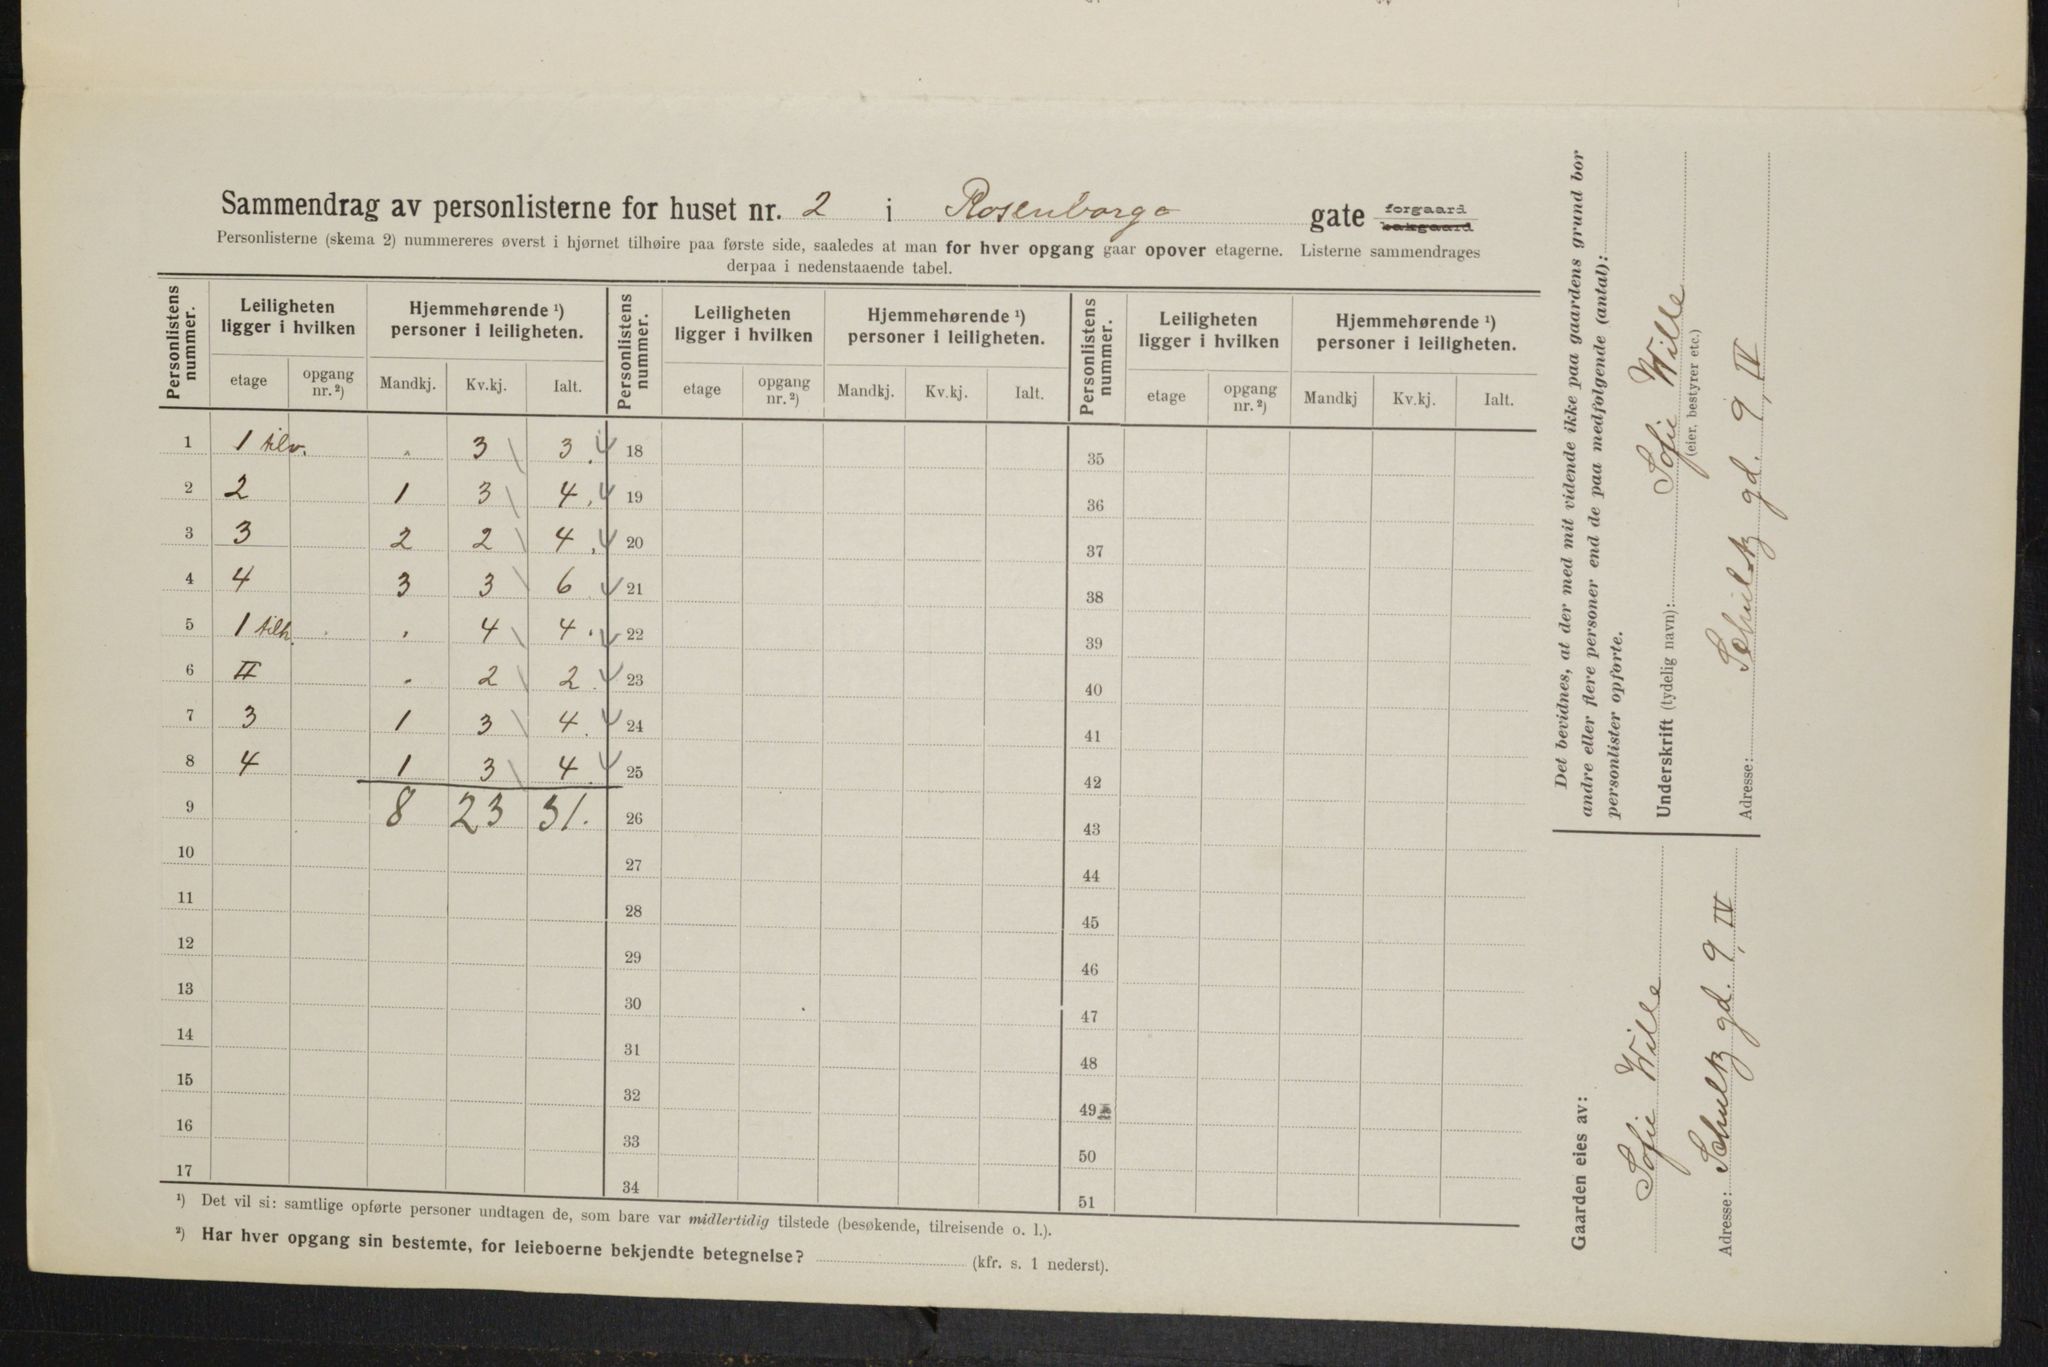 Sammendrag av personlisterne for huset nr. 2 i Rosenborg gate forgaard bakgaard
Personlisterne (skema 2) nummereres øverst i hjørnet tilhøire paa første side, saaledes at man for hver opgang gaar opover etagerne. Listerne sammendrages
derpaa i nedenstaaende tabel.
Personlistens nummer. Leiligheten ligger i hvilken Hjemmehørende ¹) personer i leiligheten. Personlistens nummer. Leiligheten ligger i hvilken Hjemmehørende ¹) personer i leiligheten. Personlistens nummer. Leiligheten ligger i hvilken Hjemmehørende ¹) personer i leiligheten.
etage opgang nr. ²) Mandkj. Kv.kj. Ialt. etage opgang nr. ²) Mandkj. Kv.kj. Ialt. etage opgang nr. ²) Mandkj Kv.kj. Ialt.
1 1 tilv. . 3 3. 18 35
2 2 1 3 4. 19 36
3 3 2 2 4. 20 37
4 4 3 3 6. 21 38
5 1 tilh. . 4 4. 22 39
6 II . 2 2. 23 40
7 3 1 3 4. 24 41
8 4 1 3 4. 25 42
9 8 23 31. 26 43
10 27 44
11 28 45
12 29 46
13 30 47
14 31 48
15 32 49
16 33 50
17 34 51
¹) Det vil si: samtlige opførte personer undtagen de, som bare var midlertidig tilstede (besøkende, tilreisende o. l.).
²) Har hver opgang sin bestemte, for leieboerne bekjendte betegnelse? (kfr. s. 1 nederst).
Det bevidnes, at der med mit vidende ikke paa gaardens grund bor
andre eller flere personer end de paa medfølgende (antal):
personlister opførte.
Underskrift (tydelig navn): Sofie Wille
(eier, bestyrer etc.)
Adresse: Schultz gd. 9, IV
Gaarden eies av:
Sofie Wille
Adresse: Schultz gd. 9, IV